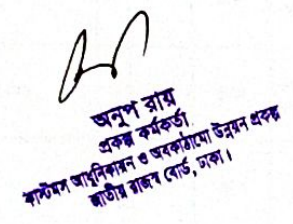 অনুপ রায়
প্রকল্প কর্মকর্তা
কাস্টমস আধুনিকায়ন ও অবকাঠামো উন্নয়ন প্রকল্প
জাতীয় রাজস্ব বোর্ড, ঢাকা।